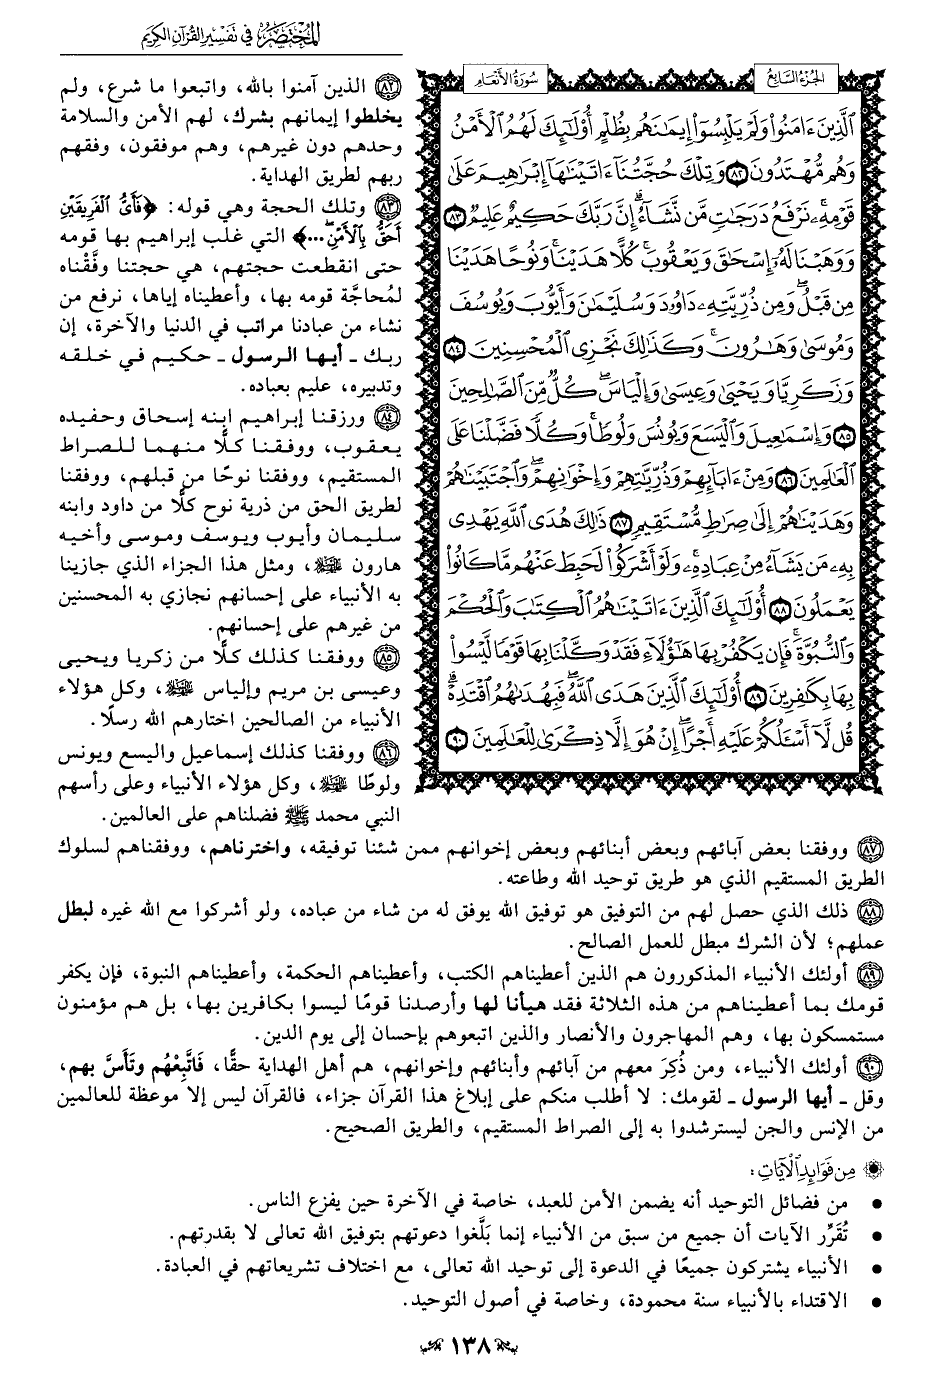 المختصر في تفسير القرآن الكريم
الجزء السابع
سورة الأنعام
الَّذِينَ ءَامَنُوا۟ وَلَمْ يَلْبِسُوٓا۟ إِيمَٰنَهُم بِظُلْمٍ أُو۟لَٰٓئِكَ لَهُمُ ٱلْأَمْنُ
وَهُم مُّهْتَدُونَ ٨٢ وَتِلْكَ حُجَّتُنَآ ءَاتَيْنَٰهَآ إِبْرَٰهِيمَ عَلَىٰ
قَوْمِهِۦ ۚ نَرْفَعُ دَرَجَٰتٍ مَّن نَّشَآءُ ۗ إِنَّ رَبَّكَ حَكِيمٌ عَلِيمٌ ٨٣
وَوَهَبْنَا لَهُۥٓ إِسْحَٰقَ وَيَعْقُوبَ ۚ كُلًّا هَدَيْنَا ۚ وَنُوحًا هَدَيْنَا
مِن قَبْلُ ۖ وَمِن ذُرِّيَّتِهِۦ دَاوُۥدَ وَسُلَيْمَٰنَ وَأَيُّوبَ وَيُوسُفَ
وَمُوسَىٰ وَهَٰرُونَ ۚ وَكَذَٰلِكَ نَجْزِى ٱلْمُحْسِنِينَ ٨٤
وَزَكَرِيَّا وَيَحْيَىٰ وَعِيسَىٰ وَإِلْيَاسَ ۖ كُلٌّ مِّنَ ٱلصَّٰلِحِينَ
٨٥ وَإِسْمَٰعِيلَ وَٱلْيَسَعَ وَيُونُسَ وَلُوطًا ۚ وَكُلًّا فَضَّلْنَا عَلَى
ٱلْعَٰلَمِينَ ٨٦ وَمِنْ ءَابَآئِهِمْ وَذُرِّيَّٰتِهِمْ وَإِخْوَٰنِهِمْ ۖ وَٱجْتَبَيْنَٰهُمْ
وَهَدَيْنَٰهُمْ إِلَىٰ صِرَٰطٍ مُّسْتَقِيمٍ ٨٧ ذَٰلِكَ هُدَى ٱللَّهِ يَهْدِى
بِهِۦ مَن يَشَآءُ مِنْ عِبَادِهِۦ ۚ وَلَوْ أَشْرَكُوا۟ لَحَبِطَ عَنْهُم مَّا كَانُوا۟
يَعْمَلُونَ ٨٨ أُو۟لَٰٓئِكَ ٱلَّذِينَ ءَاتَيْنَٰهُمُ ٱلْكِتَٰبَ وَٱلْحُكْمَ
وَٱلنُّبُوَّةَ ۚ فَإِن يَكْفُرْ بِهَا هَٰٓؤُلَآءِ فَقَدْ وَكَّلْنَا بِهَا قَوْمًا لَّيْسُوا۟
بِهَا بِكَٰفِرِينَ ٨٩ أُو۟لَٰٓئِكَ ٱلَّذِينَ هَدَى ٱللَّهُ ۖ فَبِهُدَىٰهُمُ ٱقْتَدِهْ ۗ
قُل لَّآ أَسْـَٔلُكُمْ عَلَيْهِ أَجْرًا ۖ إِنْ هُوَ إِلَّا ذِكْرَىٰ لِلْعَٰلَمِينَ ٩٠
٨٢ الذين آمنوا بالله، واتبعوا ما شرع، ولم
يخلطوا إيمانهم بشرك، لهم الأمن والسلامة
وحدهم دون غيرهم، وهم موفقون، وفقهم
ربهم لطريق الهداية.
٨٣ وتلك الحجة وهي قوله: ﴿فَأَيُّ ٱلْفَرِيقَيْنِ
أَحَقُّ بِٱلْأَمْنِ ...﴾ التي غلب إبراهيم بها قومه
حتى انقطعت حجتهم، هي حجتنا وفَّقْناه
لمُحاجَّة قومه بها، وأعطيناه إياها، نرفع من
نشاء من عبادنا مراتب في الدنيا والآخرة، إن
ربك ـ أيها الرسول ـ حكيم في خلقه
وتدبيره، عليم بعباده.
٨٤ ورزقنا إبراهيم ابنه إسحاق وحفيده
يعقوب، ووفقنا كلًّا منهما للصراط
المستقيم، ووفقنا نوحًا من قبلهم، ووفقنا
لطريق الحق من ذرية نوح كلًّا من داود وابنه
سليمان وأيوب ويوسف وموسى وأخيه
هارون ﷺ، ومثل هذا الجزاء الذي جازينا
به الأنبياء على إحسانهم نجازي به المحسنين
من غيرهم على إحسانهم.
٨٥ ووفقنا كذلك كلًّا من زكريا ويحيى
وعيسى بن مريم وإلياس ﷺ، وكل هؤلاء
الأنبياء من الصالحين اختارهم الله رسلًا.
٨٦ ووفقنا كذلك إسماعيل واليسع ويونس
ولوطًا ﷺ، وكل هؤلاء الأنبياء وعلى رأسهم
النبي محمد ﷺ فضلناهم على العالمين.
٨٧ ووفقنا بعض آبائهم وبعض أبنائهم وبعض إخوانهم ممن شئنا توفيقه، واخترناهم، ووفقناهم لسلوك
الطريق المستقيم الذي هو طريق توحيد الله وطاعته.
٨٨ ذلك الذي حصل لهم من التوفيق هو توفيق الله يوفق له من شاء من عباده، ولو أشركوا مع الله غيره لبطل
عملهم؛ لأن الشرك مبطل للعمل الصالح.
٨٩ أولئك الأنبياء المذكورون هم الذين أعطيناهم الكتب، وأعطيناهم الحكمة، وأعطيناهم النبوة، فإن يكفر
قومك بما أعطيناهم من هذه الثلاثة فقد هيأنا لها وأرصدنا قومًا ليسوا بكافرين بها، بل هم مؤمنون
مستمسكون بها، وهم المهاجرون والأنصار والذين اتبعوهم بإحسان إلى يوم الدين.
٩٠ أولئك الأنبياء، ومن ذُكِرَ معهم من آبائهم وأبنائهم وإخوانهم، هم أهل الهداية حقًّا، فَاتَّبِعْهُم وتَأَسَّ بهم،
وقل ـ أيها الرسول ـ لقومك: لا أطلب منكم على إبلاغ هذا القرآن جزاء، فالقرآن ليس إلا موعظة للعالمين
من الإنس والجن ليسترشدوا به إلى الصراط المستقيم، والطريق الصحيح.
مِن فَوَائِدِ الْآيَاتِ:
• من فضائل التوحيد أنه يضمن الأمن للعبد، خاصة في الآخرة حين يفزع الناس.
• تُقَرِّر الآيات أن جميع من سبق من الأنبياء إنما بَلَّغوا دعوتهم بتوفيق الله تعالى لا بقدرتهم.
• الأنبياء يشتركون جميعًا في الدعوة إلى توحيد الله تعالى، مع اختلاف تشريعاتهم في العبادة.
• الاقتداء بالأنبياء سنة محمودة، وخاصة في أصول التوحيد.
١٣٨